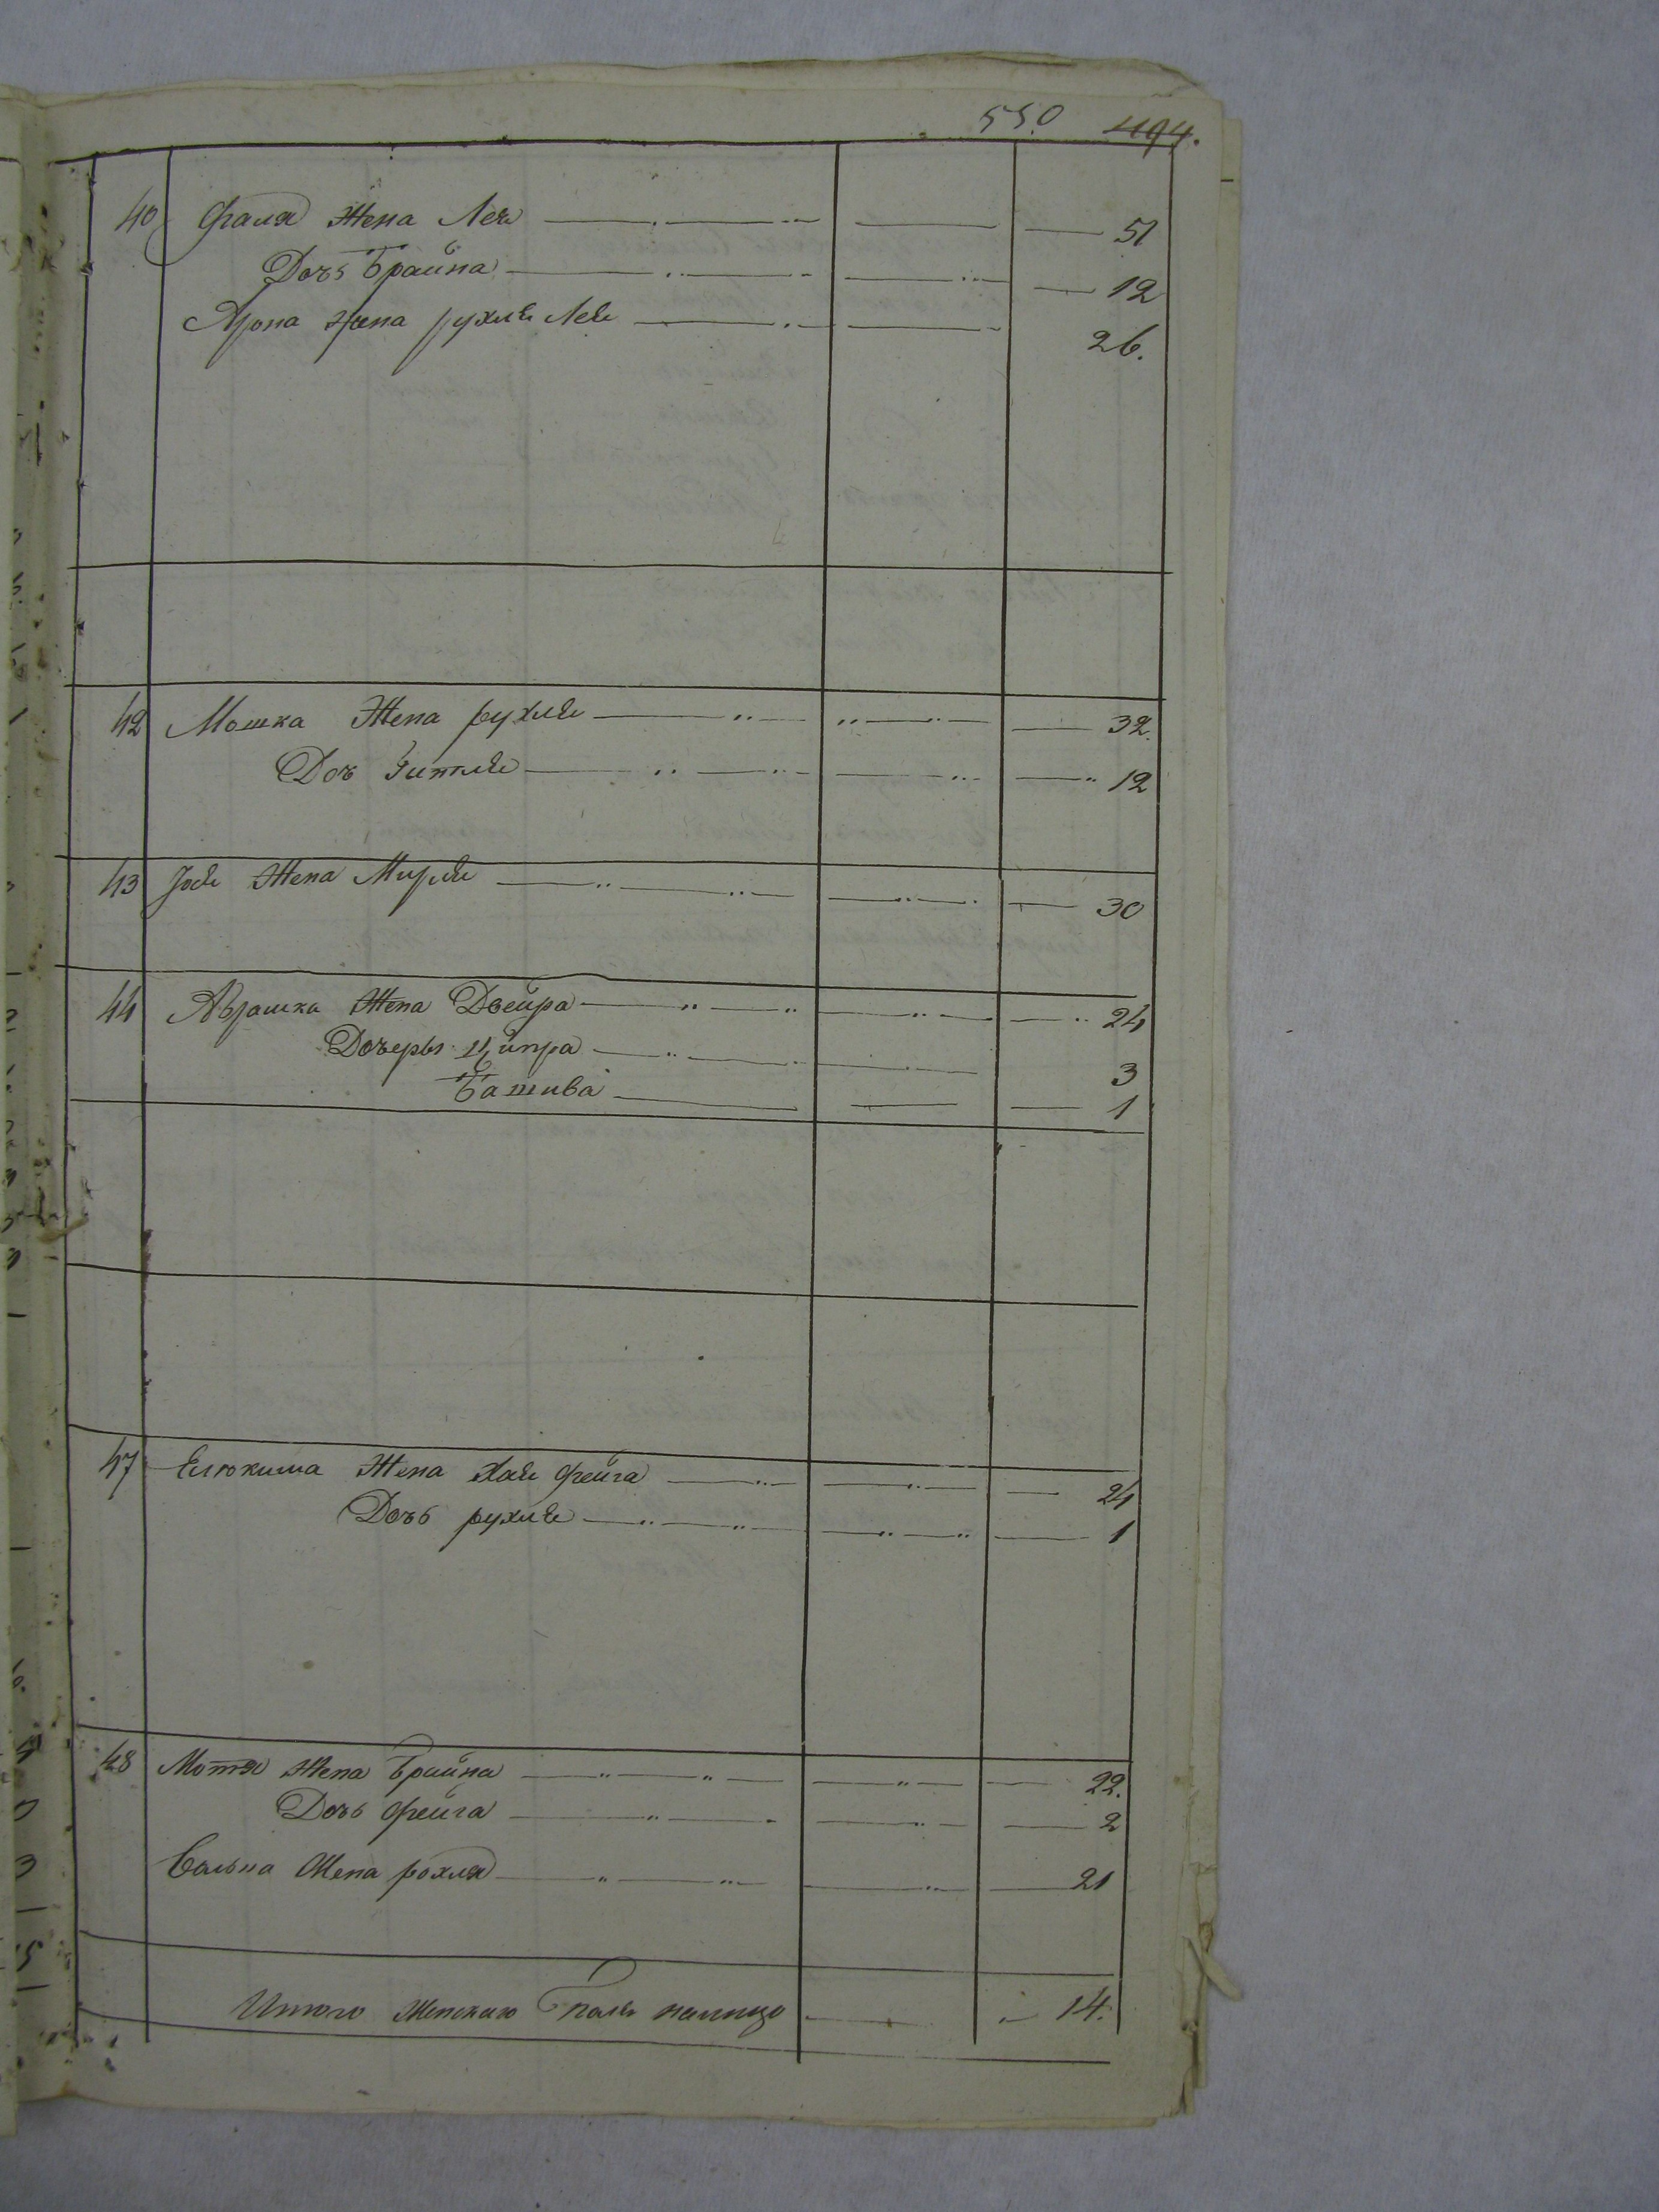 550 494.
40 Фаля Жена Лея 51
Дочь Брайна 12
Арона жена рухля Лея 26.
42 Мошка Жена рухля 32.
Доч Гитля 12
43 Жена Мирля 30
44 Абрашка Жена Двейра 24
Дочеры Ципра 3
Башива 1
47 Елюкима Жена Хая Фейга 24
Дочь рухля 1
48 Мотя Жена Брайна 22.
Дочь Фейга 2
Жена рохля 21
Итого Женскаго пола налицо 14.